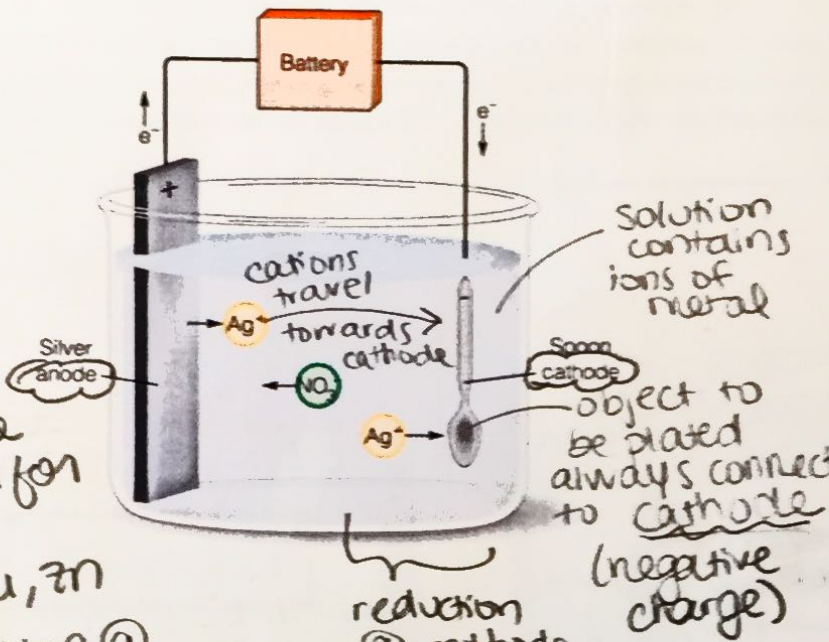 Battery
e⁻
e⁻
+
cations
travel
Ag⁺
towards
cathode
Silver
anode
Ag⁺
Spoon
cathode
solution
contains
ions of
metal
object to
be plated
always connect
to cathode
(negative
charge)
for
Zn
reduction
cathode